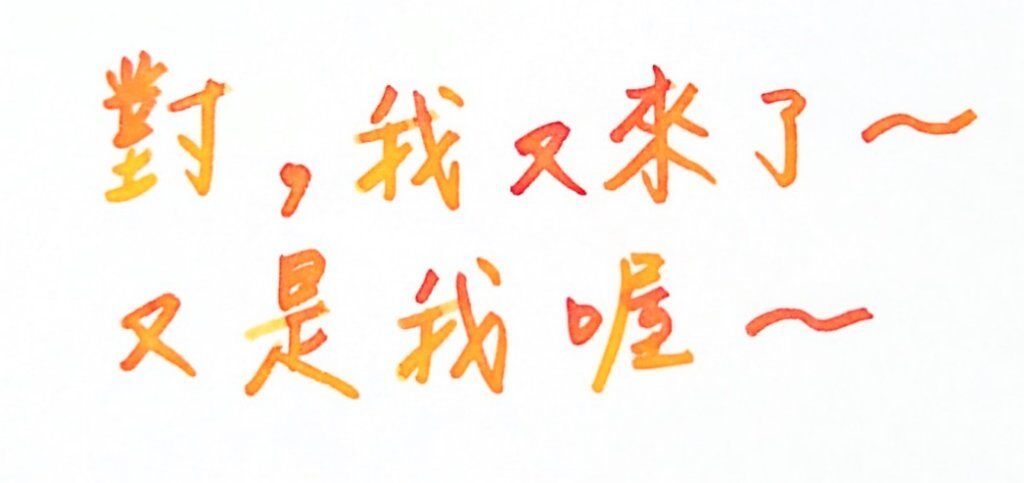 對，我又來了～
又是我喔～